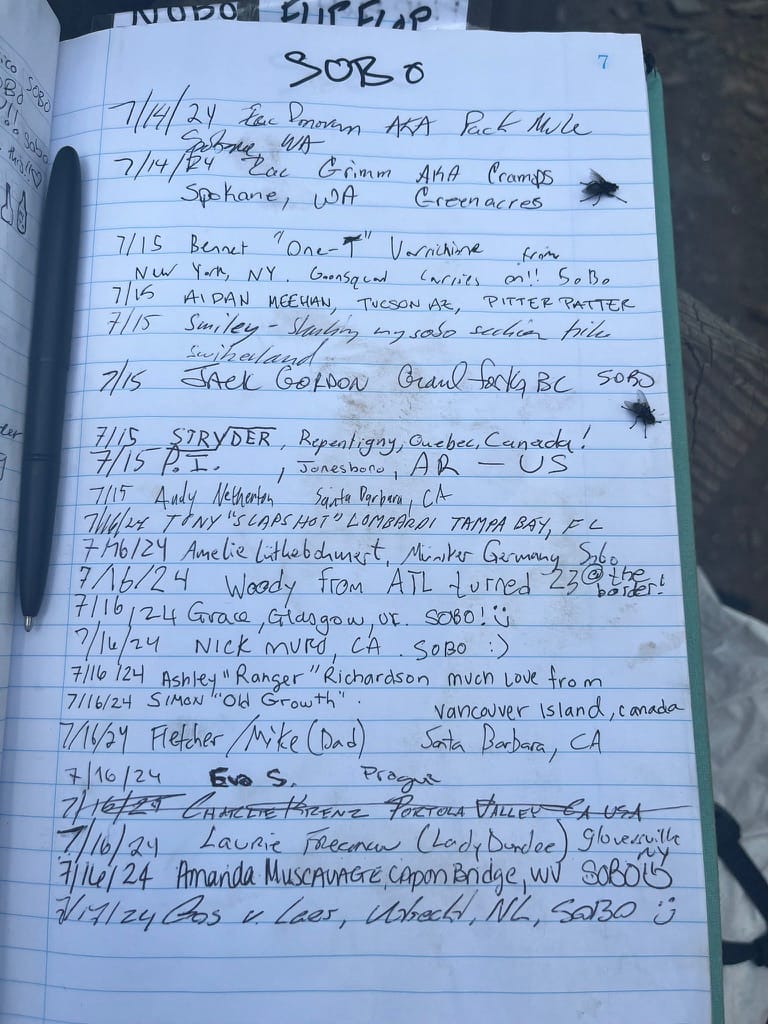 NOBO FLIP FLOP
SOBO
7
7/14/24 Zac Donovan AKA Pack Mule
WA
7/14/24 Zac Grimm AKA Cramps
Spokane, WA Greenacres
7/15 Bennet "One-T" from
New York, NY. Goonsquad carries on!! SoBo
7/15 AIDAN MEEHAN, TUCSON AZ, PITTER PATTER
7/15 Smiley - Starting my sobo section hike
Switzerland
7/15 JACK GORDON Grand forks BC SOBO
7/15 STRYDER, Repentigny, Quebec, Canada!
7/15 P.I. , Jonesboro, AR - US
7/15 Andy Netherton Santa Barbara, CA
7/16/24 TONY "SLAPSHOT" LOMBARDI TAMPA BAY, FL
7/16/24 Amelie Germany Sobo
7/16/24 Woody from ATL turned 23 @ the
border!
7/16/24 Grace, Glasgow, UK. SOBO! :)
7/16/24 NICK MURO, CA. SOBO :)
7/16/24 Ashley "Ranger" Richardson much love from
7/16/24 SIMON "Old Growth".
Vancouver Island, Canada
7/16/24 Fletcher / Mike (Dad) Santa Barbara, CA
7/16/24 Eva S. Prague
7/16/24 CHARLIE KRENZ PORTOLA VALLEY CA USA
7/16/24 Laurie Freeman (Lady Dundee) Gloversville
NY
7/16/24 Amanda MUSCAVAGE, Capon Bridge, WV SOBO
7/17/24 v. Laer, Utrecht, NL, SOBO :)